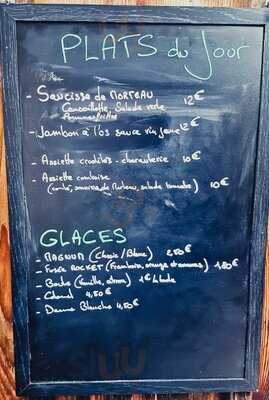 PLATS du Jour
- Saucisse de MORTEAU 12€
Cancoillotte, Salade verte
Pommes frites
- Jambon à l'os sauce vin jaune 12€
- Assiette crudités - charcuterie 10€
- Assiette comtoise
(comté, saucisse de Morteau, salade tomate) 10€
GLACES
- MAGNUM (Choco / Blanc) 2,50€
- FUSÉE ROCKET (Framboise, orange et ananas) 1,80€
- Boule (Vanille, citron) 1€ la boule
- Chocol 4,50€
- Dame Blanche 4,50€